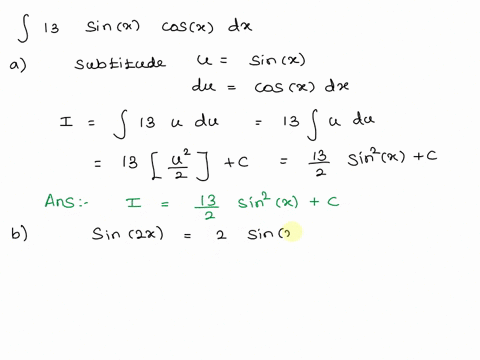 ∫ 13 sin(x) cos(x) dx
a) substitude u = sin(x)
du = cos(x) dx
I = ∫ 13 u du = 13 ∫ u du
= 13 [u²/2] + C = 13/2 sin²(x) + C
Ans:- I = 13/2 sin²(x) + C
b) sin(2x) = 2 sin(